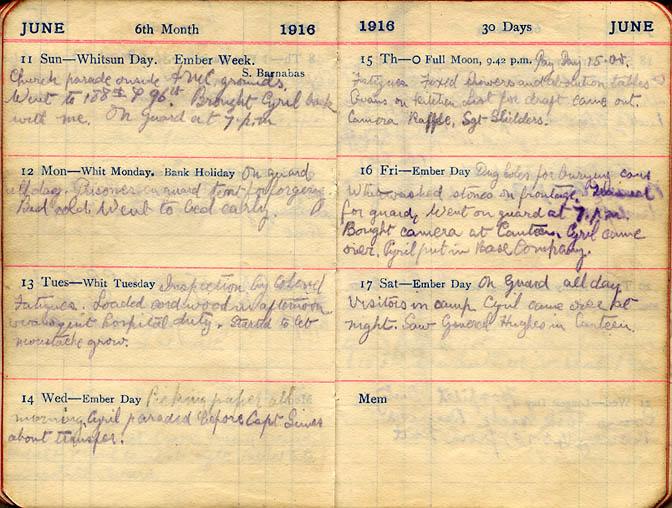 JUNE 6th Month 1916
11 Sun—Whitsun Day. Ember Week.
S. Barnabas
Church parade grounds.
Went to 108th & 96th Brought Cyril back
with me. On Guard at 7 p.m
12 Mon—Whit Monday. Bank Holiday On guard
all day. Prisoner in guard tent for forgery
Bad cold Went to bed early.
13 Tues—Whit Tuesday Inspection by Colonel
Fatigues. Loaded cordwood in afternoon
hospital duty. Started to let
moustache grow.
14 Wed—Ember Day Picking paper all
morning Cyril paraded before Capt
about transfer.
1916 30 Days JUNE
15 Th—O Full Moon, 9.42 p.m. Pay Day 15.00.
Fatigues Fixed showers and ablution tables
on Kitchen List for draft came out.
Camera Raffle, Sgt Shilders.
16 Fri—Ember Day Dug holes for burying cans
Whitewashed stones on frontage.
for guard, Went on guard at 7. p.m.
Bought camera at Canteen Cyril came
over. Cyril put in Base Company.
17 Sat—Ember Day On Guard all day
Visitors in camp Cyril came over at
night. Saw General Hughes in Canteen.
Mem